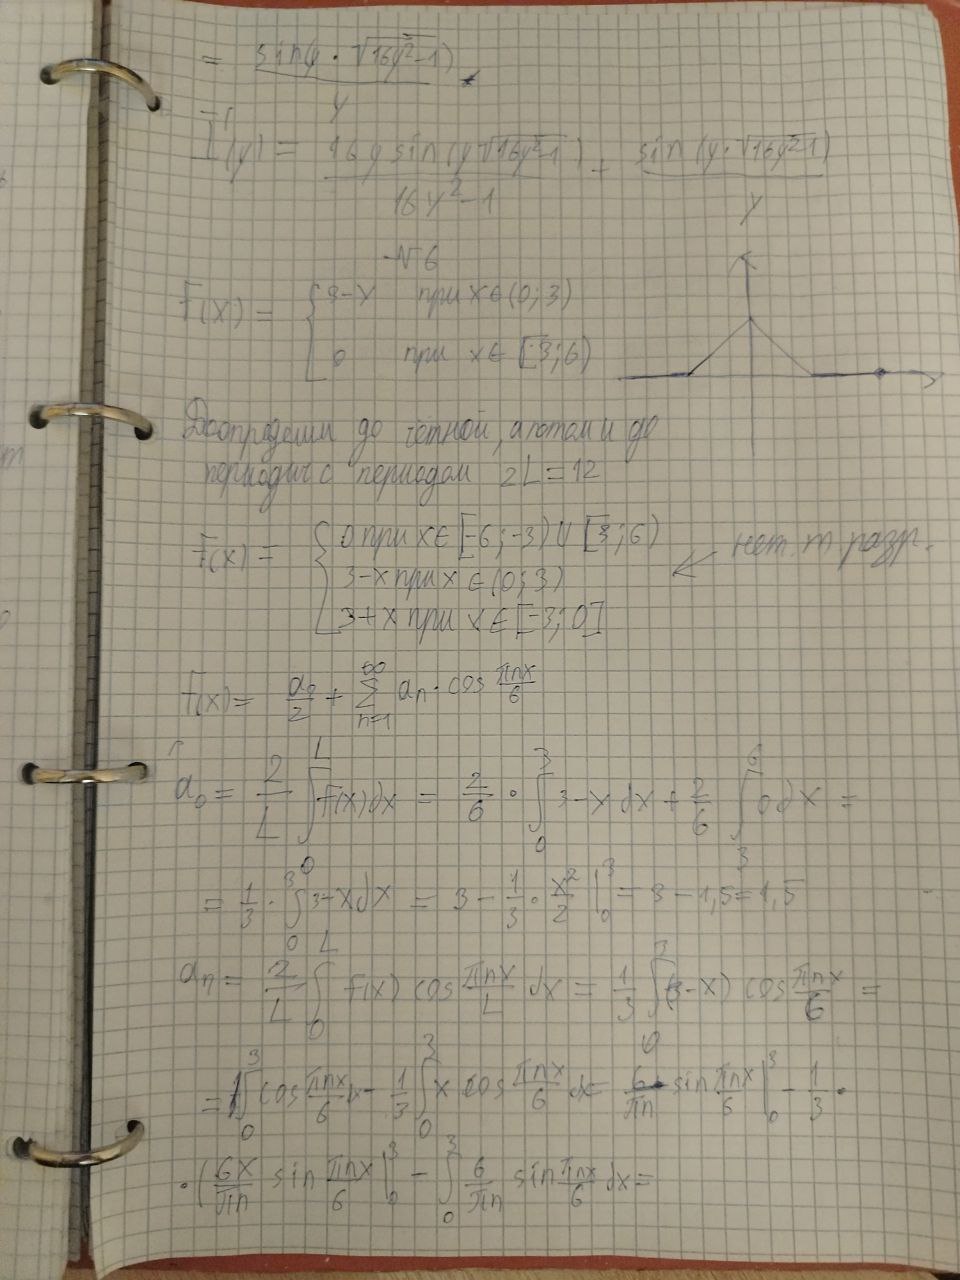 = sin(y · √(16y²-1)) / y .
I'(y) = 16y sin(y√(16y²-1)) / (16y²-1) + sin(y·√(16y²-1)) / y
N6
F(x) = { 3-x при x∈(0;3)
0 при x∈[3;6)
Доопределим до чётной, а потом и до
периодич с периодом 2L=12
F(x) = { 0 при x∈[-6;-3)∪[3;6)
3-x при x∈(0;3) ← нет т разр.
3+x при x∈[-3;0]
F(x) = a₀/2 + ∑_{n=1}^{∞} aₙ · cos πnx/6
a₀ = 2/L ∫₀^L F(x)dx = 2/6 · ∫₀³ 3-x dx + 2/6 ∫₃⁶ 0 dx =
= 1/3 · ∫₀³ 3-x dx = 3 - 1/3 · x²/2 |₀³ = 3 - 1,5 = 1,5
aₙ = 2/L ∫₀^L f(x) cos πnx/L dx = 1/3 ∫₀³ (3-x) cos πnx/6 =
= ∫₀³ cos πnx/6 dx - 1/3 ∫₀³ x cos πnx/6 dx = 6/πn sin πnx/6 |₀³ - 1/3 ·
· (6x/πn sin πnx/6 |₀³ - ∫₀³ 6/πn sin πnx/6 dx =